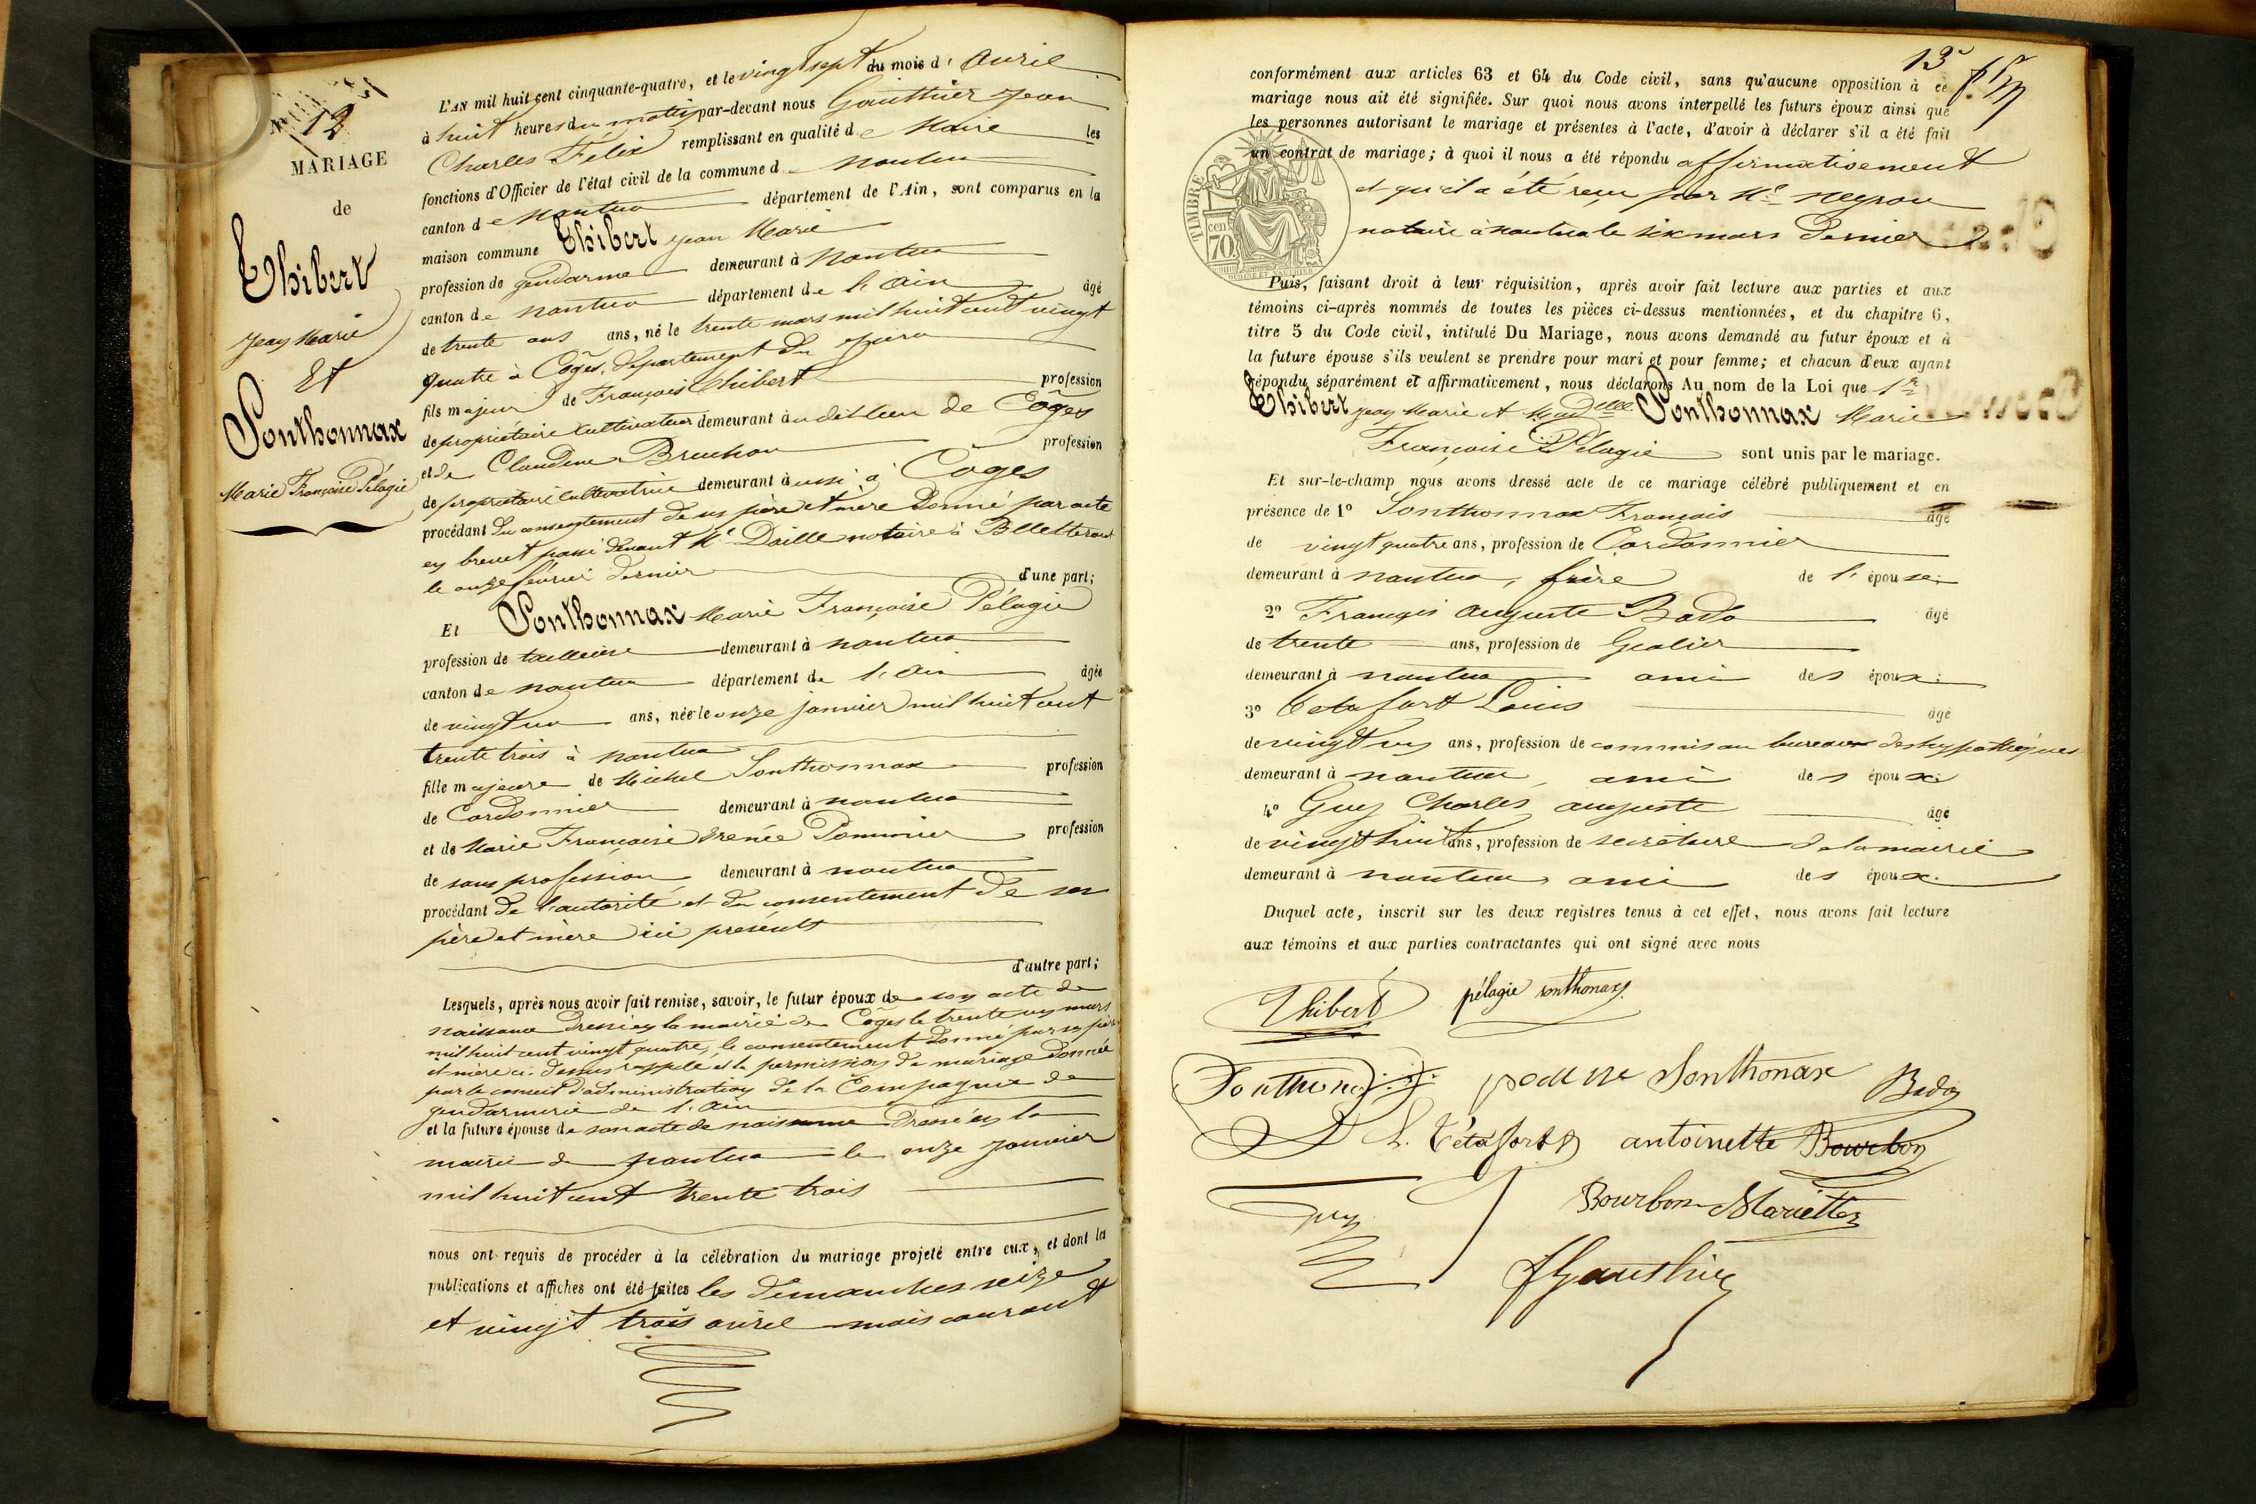 12
MARIAGE
de
Thibert
Jean Marie
Et
Sonthonnax
Marie Françoise Pélagie
L'AN mil huit cent cinquante-quatre, et le vingt sept du mois d'avril
à huit heures du matin par-devant nous Gauthier Jean
Charles Félix remplissant en qualité de Maire les
fonctions d'Officier de l'état civil de la commune de Nantua
canton de Nantua département de l'Ain, sont comparus en la
maison commune Thibert Jean Marie
profession de gendarme demeurant à Nantua
canton de Nantua département de l'Ain âgé
de trente ans ans, né le trente mars mil huit cent vingt
quatre à Côges, département du Jura
fils majeur de François Thibert profession
de propriétaire cultivateur demeurant au dit lieu de Côges
et de Claudine Bruchon profession
de propriétaire cultivatrice demeurant aussi à Coges
procédant du consentement de ses père et mère donné par acte
en brevet passé devant Me Daille notaire à Blletterans
le onze février dernier d'une part;
Et Sonthonnax Marie Françoise Pélagie
profession de tailleuse demeurant à Nantua
canton de Nantua département de l'Ain âgée
de vingt un ans, née le onze janvier mil huit cent
trente trois à Nantua
fille majeure de Michel Sonthonnax profession
de Cordonnier demeurant à Nantua
et de Marie Françoise Irenée Pommier profession
de sans profession demeurant à Nantua
procédant de l'autorité et du consentement de ses
père et mère ici présents
d'autre part;
Lesquels, après nous avoir fait remise, savoir, le futur époux de son acte de
naissance dressé en la mairie de Côges le trente un mars
mil huit cent vingt quatre, le consentement donné par ses père
et mère ci-dessus rappelé et la permission de mariage donnée
par le conseil d'administration de la Compagnie de
gendarmerie de l'Ain
et la future épouse de son acte de naissance dressé en la
mairie de Nantua le onze Janvier
mil huit cent trente trois
nous ont requis de procéder à la célébration du mariage projeté entre eux, et dont les
publications et affiches ont été faites les dimanches seize
et vingt trois avril mois courant
13
conformément aux articles 63 et 64 du Code civil, sans qu'aucune opposition à ce
mariage nous ait été signifiée. Sur quoi nous avons interpellé les futurs époux ainsi que
les personnes autorisant le mariage et présentes à l'acte, d'avoir à déclarer s'il a été fait
un contrat de mariage; à quoi il nous a été répondu affirmativement
et qu'il a été reçu par Me Neyron
notaire à Nantua le six mars dernier
TIMBRE
70 cen
Puis, faisant droit à leur réquisition, après avoir fait lecture aux parties et aux
témoins ci-après nommés de toutes les pièces ci-dessus mentionnées, et du chapitre 6,
titre 5 du Code civil, intitulé Du Mariage, nous avons demandé au futur époux et à
la future épouse s'ils veulent se prendre pour mari et pour femme; et chacun d'eux ayant
répondu séparément et affirmativement, nous déclarons Au nom de la Loi que
Thibert Jean Marie et Sonthonnax Marie
Françoise Pélagie sont unis par le mariage.
Et sur-le-champ nous avons dressé acte de ce mariage célébré publiquement et en
présence de 1° Sonthonnax François âgé
de vingt quatre ans, profession de Cordonnier
demeurant à Nantua, frère de l'épouse;
2° François Auguste Bado âgé
de trente ans, profession de Geolier
demeurant à Nantua ami des époux;
3° Tetafort Louis âgé
de vingt un ans, profession de commis au bureau des hypothèques
demeurant à Nantua, ami des époux;
4° Guy Charles Auguste âgé
de vingt huit ans, profession de secrétaire de la mairie
demeurant à Nantua ami des époux.
Duquel acte, inscrit sur les deux registres tenus à cet effet, nous avons fait lecture
aux témoins et aux parties contractantes qui ont signé avec nous
Thibert pélagie sonthonax
Sonthonax Sonthonax Bado
L. Tétafort antoinette Bourbon
Guy Bourbon Mariette
Gauthier